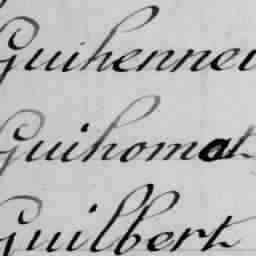 Guihenneu
Guihomat
Guilbert